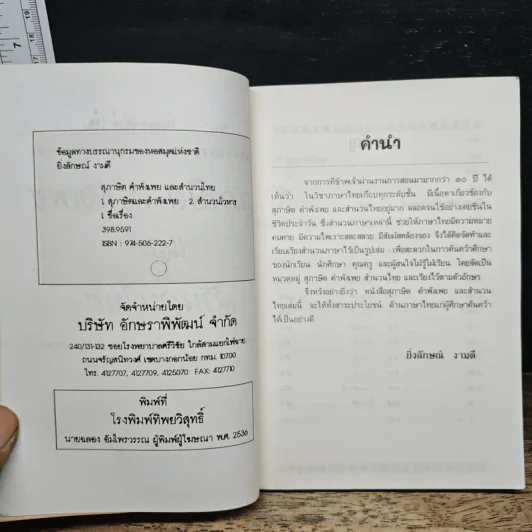 ข้อมูลทางบรรณานุกรมของหอสมุดแห่งชาติ
ยิ่งลักษณ์ งามดี
สุภาษิต คำพังเพย และสำนวนไทย
1. สุภาษิตและคำพังเพย 2. สำนวนโวหาร
I. ชื่อเรื่อง
398.9591
ISBN : 974-506-222-7
จัดจำหน่ายโดย
บริษัท อักษราพิพัฒน์ จำกัด
240/131-132 ซอยโรงพยาบาลศรีวิชัย ใกล้สามแยกไฟฉาย
ถนนจรัญสนิทวงศ์ เขตบางกอกน้อย กทม. 10700
โทร. 4127707, 4127709, 4125070 FAX: 4127710
พิมพ์ที่
โรงพิมพ์ทิพยวิสุทธิ์
นายฉลอง อัมไพรวรรณ ผู้พิมพ์ผู้โฆษณา พ.ศ. 2536
คำนำ
จากการที่ข้าพเจ้าผ่านงานการสอนมามากกว่า ๓๐ ปี ได้
เห็นว่า ในวิชาภาษาไทยเกือบทุกระดับชั้น มีเนื้อหาเกี่ยวข้องกับ
สุภาษิต คำพังเพย และสำนวนไทยอยู่มาก ตลอดจนใช้อย่างเคยชินใน
ชีวิตประจำวัน ซึ่งสำนวนภาษาเหล่านี้ ช่วยให้ภาษาไทยมีความหมาย
คมคาย มีความไพเราะสละสลวย มีสัมผัสคล้องจอง จึงได้คิดจัดทำและ
เรียบเรียงสำนวนภาษาไว้เป็นรูปเล่ม เพื่อสะดวกในการค้นคว้าศึกษา
ของนักเรียน นักศึกษา คุณครู และผู้สนใจใฝ่รู้ใฝ่เรียน โดยจัดเป็น
หมวดหมู่ สุภาษิต คำพังเพย สำนวนไทย และเรียงไว้ตามตัวอักษร
จึงหวังอย่างยิ่งว่า หนังสือสุภาษิต คำพังเพย และสำนวน
ไทยเล่มนี้ จะให้ทั้งสาระประโยชน์ ด้านภาษาไทยแก่ผู้ศึกษาค้นคว้า
ได้เป็นอย่างดี
ยิ่งลักษณ์ งามดี